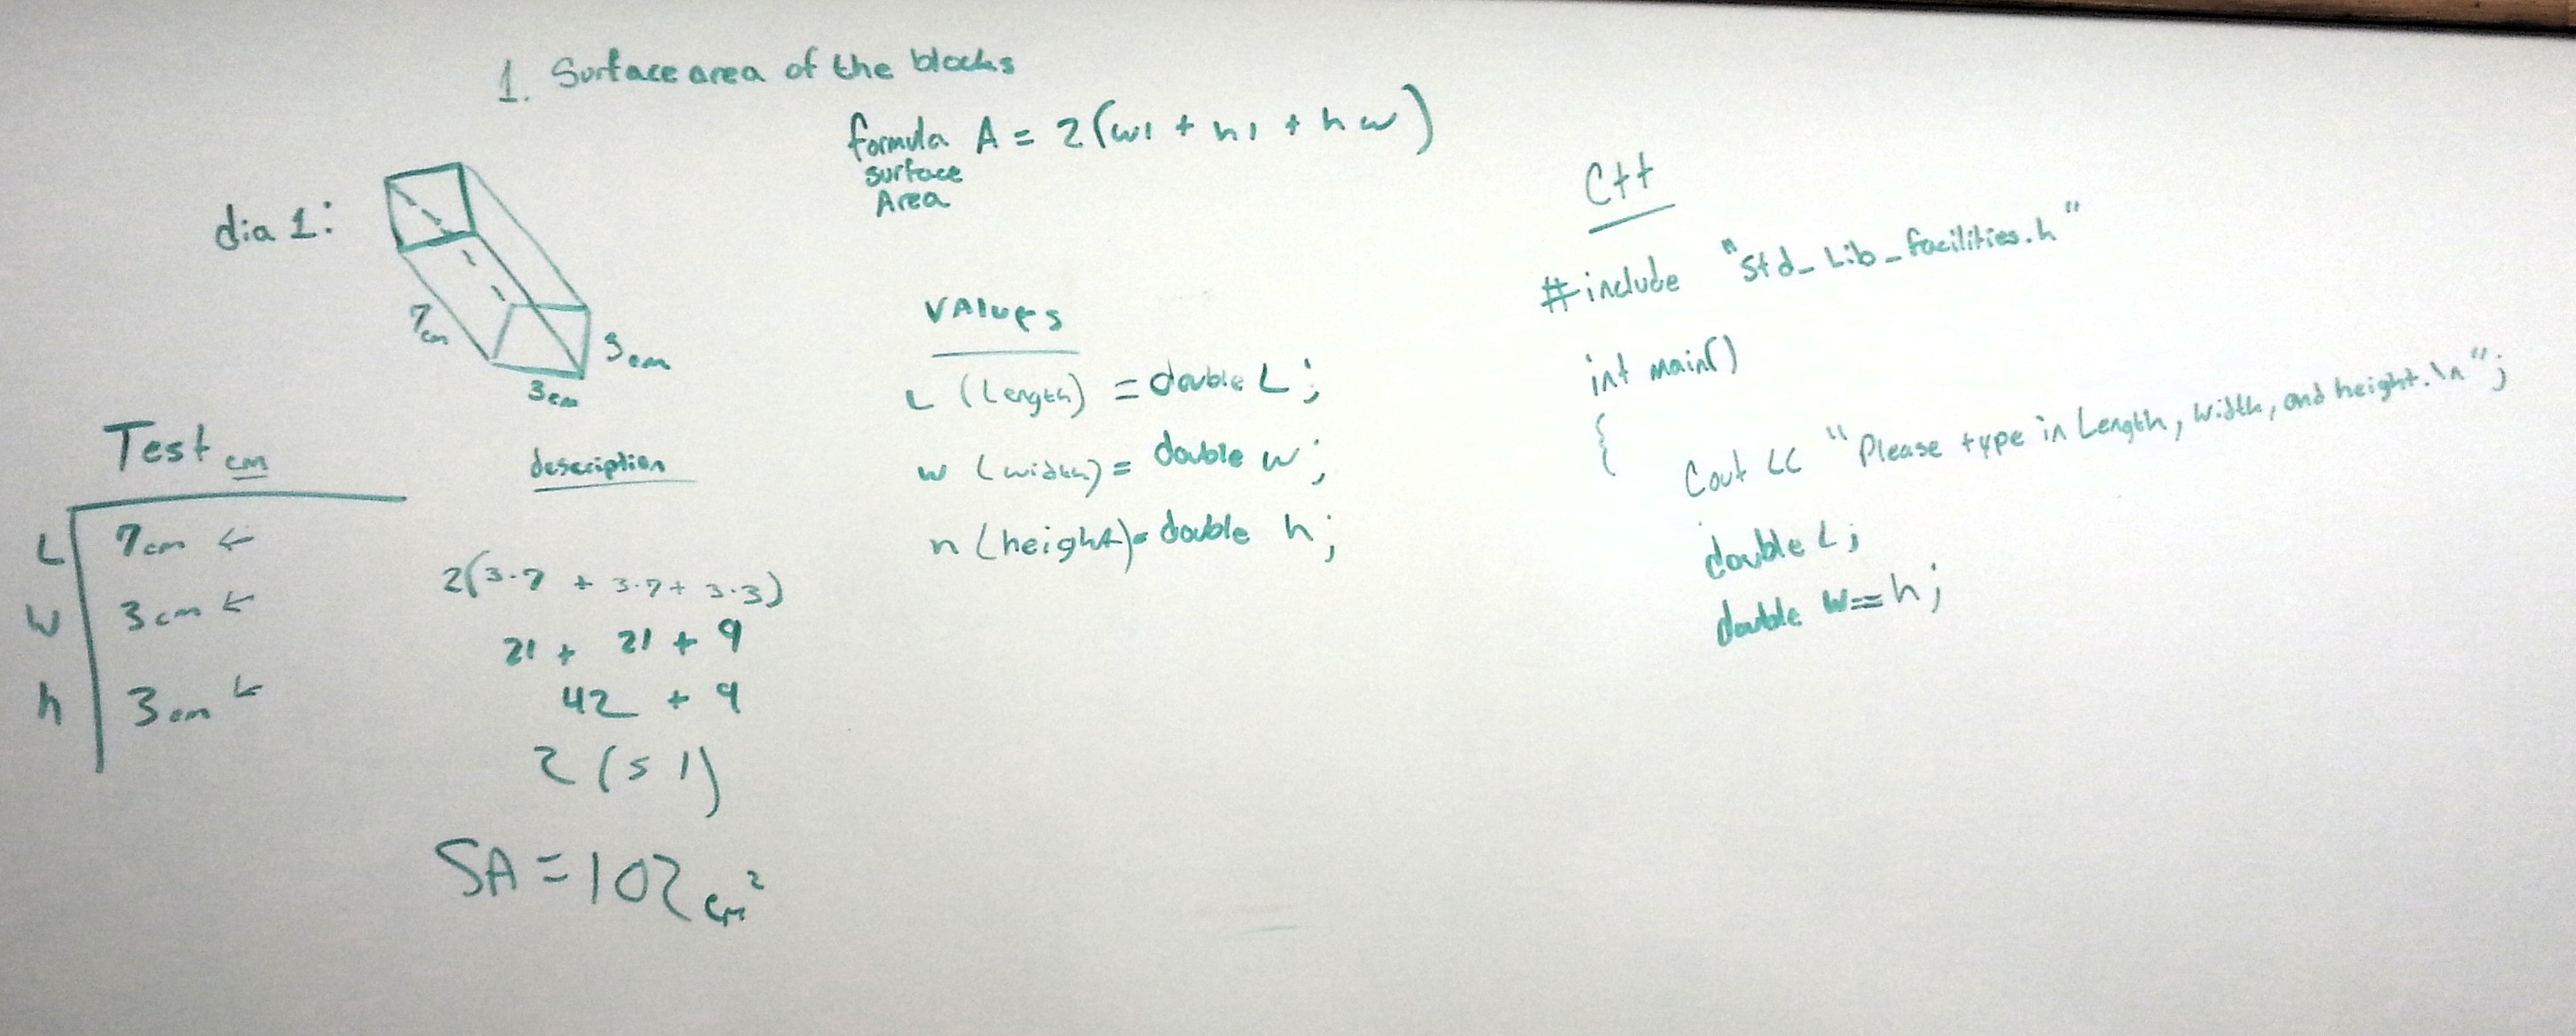 1. Surface area of the blocks
formula A = 2(wl + hl + hw)
surface
Area
dia 1:
7cm
3cm
3cm
Test cm
L 7cm ←
W 3cm ←
h 3cm ←
description
2(3·7 + 3·7 + 3·3)
21 + 21 + 9
42 + 9
2(51)
SA = 102cm²
VAlues
L (Length) = double L;
w (width) = double w;
h (height) = double h;
C++
#include "std_Lib_facilities.h"
int main()
{
Cout << "Please type in Length, width, and height.\n";
double L;
double w==h;